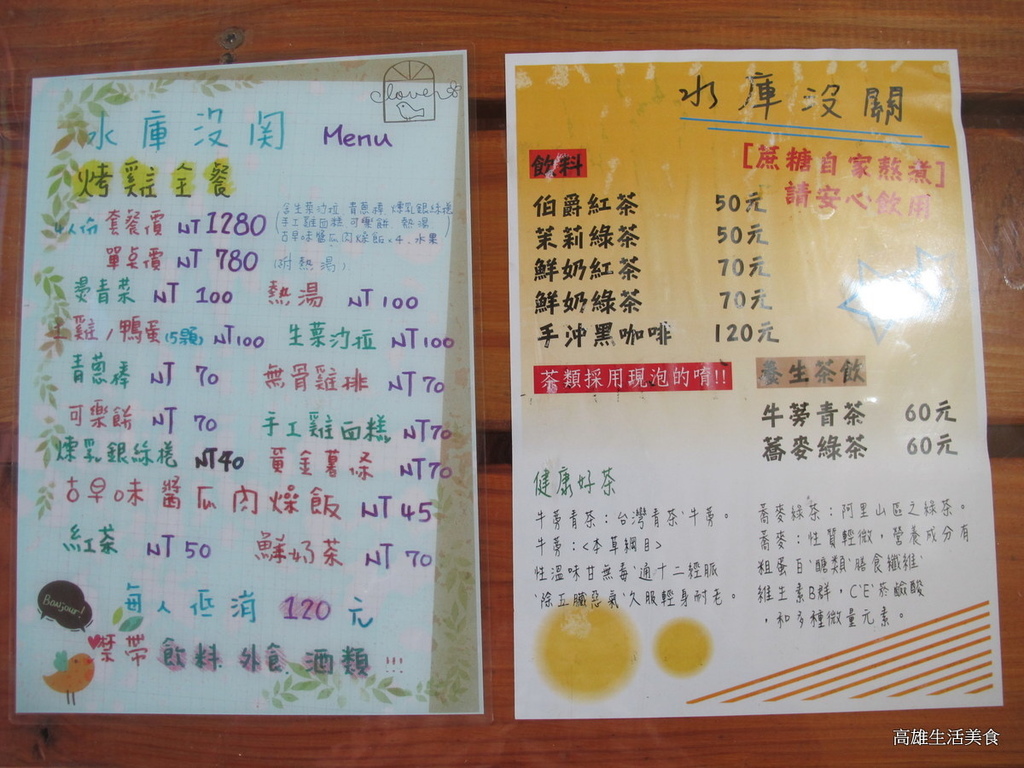 clover
水庫沒関 Menu
烤雞全餐
4人份 套餐價 NT 1280
含生菜沙拉 青蔥棒 煉乳銀絲捲
手工雞面糕 可樂餅 熱湯
古早味醬瓜肉燥飯x4、水果
單桌價 NT 780 (附熱湯)
燙青菜 NT 100 熱湯 NT 100
土雞/鴨蛋(5顆) NT 100 生菜沙拉 NT 100
青蔥棒 NT 70 無骨雞排 NT 70
可樂餅 NT 70 手工雞面糕 NT 70
煉乳銀絲捲 NT 40 黃金薯條 NT 70
古早味醬瓜肉燥飯 NT 45
紅茶 NT 50 鮮奶茶 NT 70
Bonjour!
每人低消 120 元
禁帶 飲料 外食 酒類 !!!
水庫沒關
飲料
[蔗糖自家熬煮]
請安心飲用
伯爵紅茶 50元
茉莉綠茶 50元
鮮奶紅茶 70元
鮮奶綠茶 70元
手沖黑咖啡 120元
茶類採用現泡的唷!!
養生茶飲
牛蒡青茶 60元
蕎麥綠茶 60元
健康好茶
牛蒡青茶:台灣青茶、牛蒡。
牛蒡:<本草綱目>
性溫味甘無毒、通十二經脈
、除五臟惡氣、久服輕身耐老。
蕎麥綠茶:阿里山區之綠茶。
蕎麥:性質輕微,營養成分有
粗蛋白、醣類、膳食纖維、
維生素B群,C、E、菸鹼酸
,和多種微量元素。
高雄生活美食